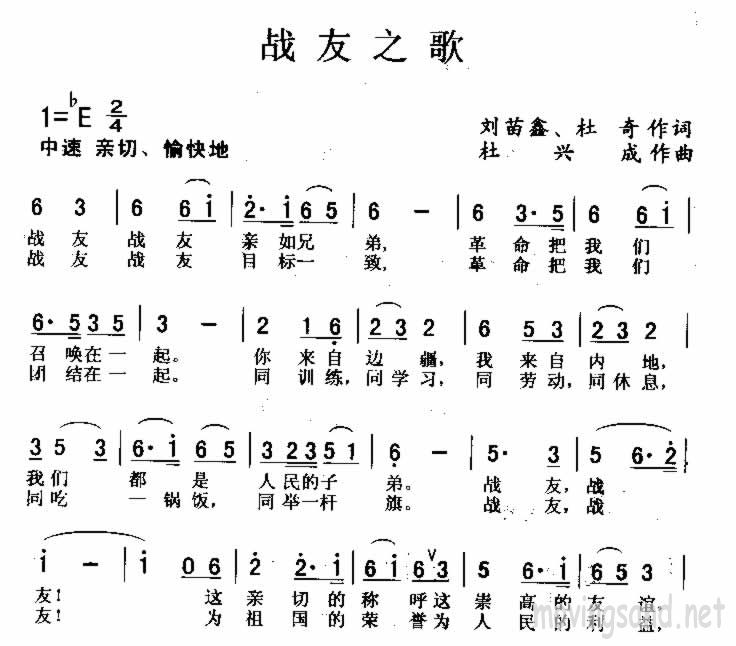 战友之歌
1=♭E 2/4
刘苗鑫、杜 奇作词
中速 亲切、愉快地
杜 兴 成作曲
6 3 | 6 6 i | 2· i 6 5 | 6 — | 6 3· 5 | 6 6 i |
战友 战友 亲如兄 弟, 革命把我们
战友 战友 目标一 致, 革命把我们
6· 5 3 5 | 3 — | 2 1 6 | 2 3 2 | 6 5 3 | 2 3 2 |
召唤在一起。 你来自边疆, 我来自内地,
团结在一起。 同训练, 同学习, 同劳动, 同休息,
3 5 3 | 6· i 6 5 | 3 2 3 5 1 | 6 — | 5· 3 | 5 6· 2 |
我们 都是 人民的子 弟。 战友, 战
同吃 一锅饭, 同举一杆 旗。 战友, 战
i — | i 0 6 | 2 2· i | 6 i 6 3 | 5 6· i | 6 5 3 |
友! 这亲切的称呼这崇高的友谊,
友! 为祖国的荣誉为人民的利益,
mtvingsand.net